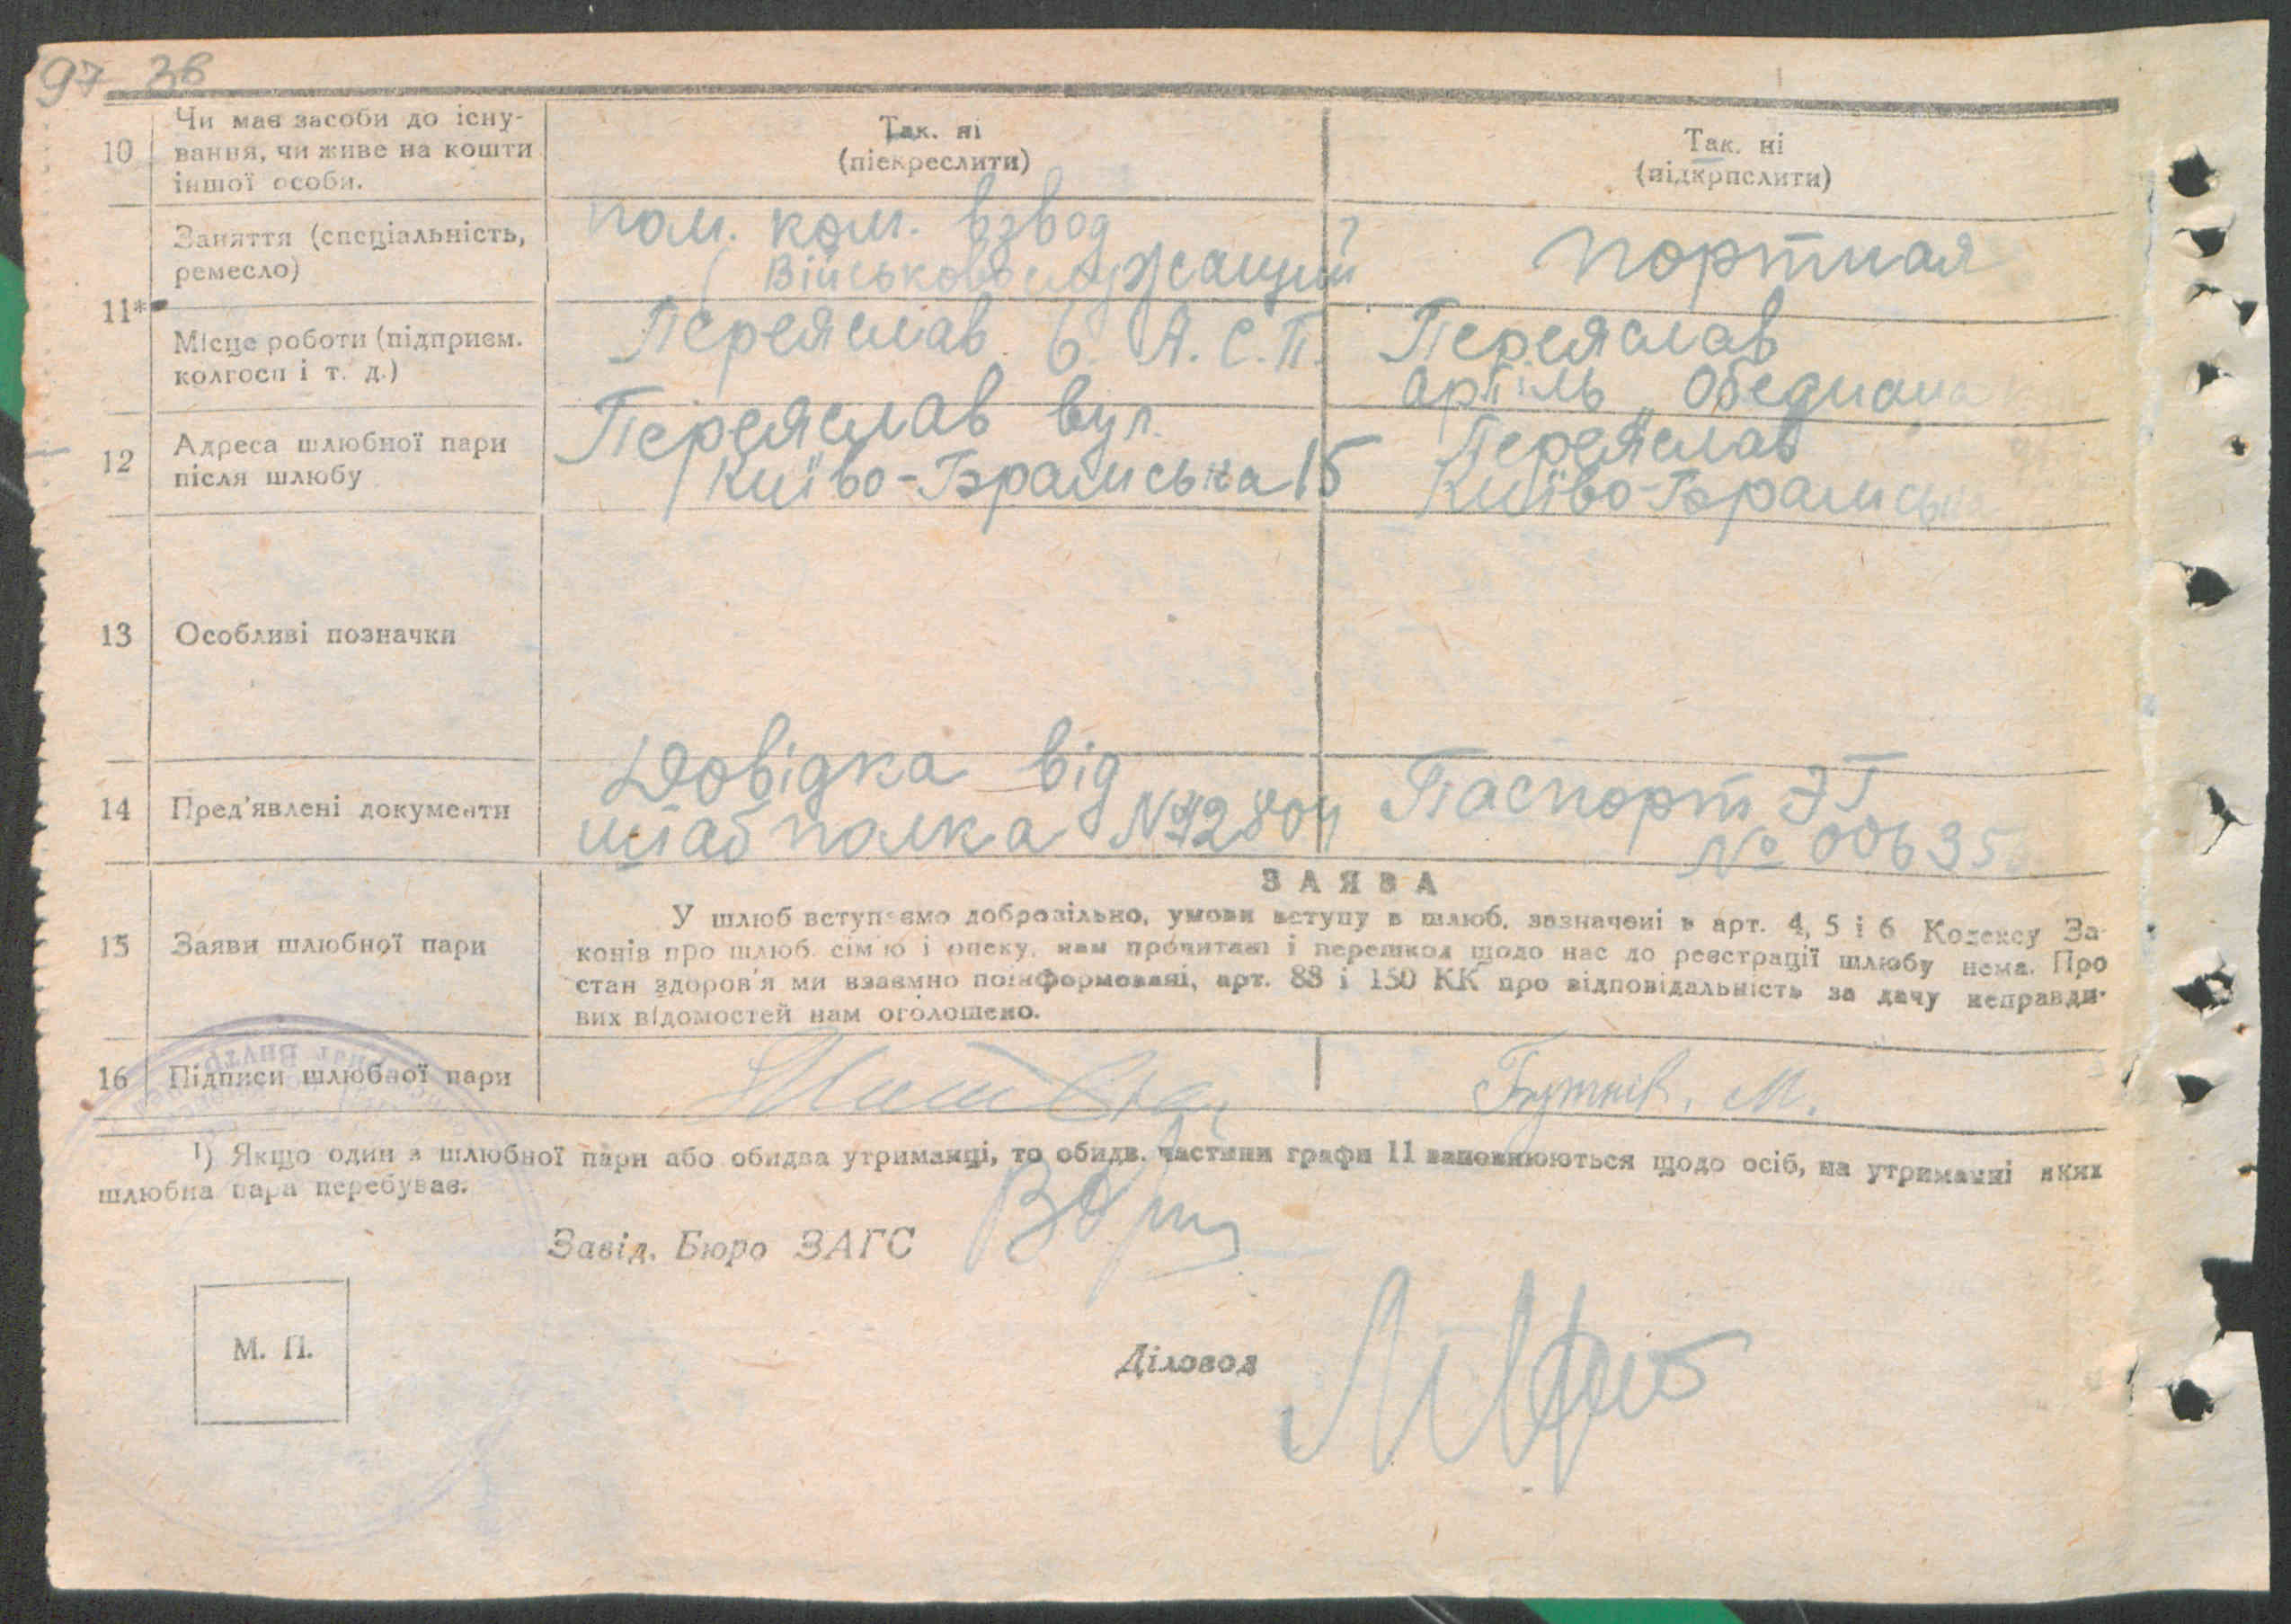 97 38
10 Чи має засоби до існу-
вання, чи живе на кошти
іншої особи.
Так. ні
(піекреслити)
Так. ні
(підкрпслити)
11* Заняття (спеціальність,
ремесло)
пом. ком. взвод
Військовослужащий
портная
Місце роботи (підприєм.
колгосп і т. д.)
Переяслав 6. А.С.П.
Переяслав
Артіль Обеднана
12 Адреса шлюбної пари
після шлюбу
Переяслав вул.
Київо-Брамська 15
Переяслав
Київо-Брамська
13 Особливі позначки
14 Пред'явлені документи
Довідка від
штаб полка №
Паспорт ЭТ
№ 00635
15 Заяви шлюбної пари
ЗАЯВА
У шлюб вступаємо добровільно, умови вступу в шлюб, зазначені в арт. 4, 5 і 6 Кодексу За-
конів про шлюб. сім'ю і опеку, нам прочитані і перешкод щодо нас до реєстрації шлюбу нема. Про
стан здоров'я ми взаємно поінформовані, арт. 88 і 150 КК про відповідальність за дачу неправди-
вих відомостей нам оголошено.
16 Підписи шлюбної пари
М.
1) Якщо один з шлюбної пари або обидва утриманці, то обидв. частини графи 11 заповнюються щодо осіб, на утриманні яких
шлюбна пара перебуває.
Завід. Бюро ЗАГС
М. П.
Діловод